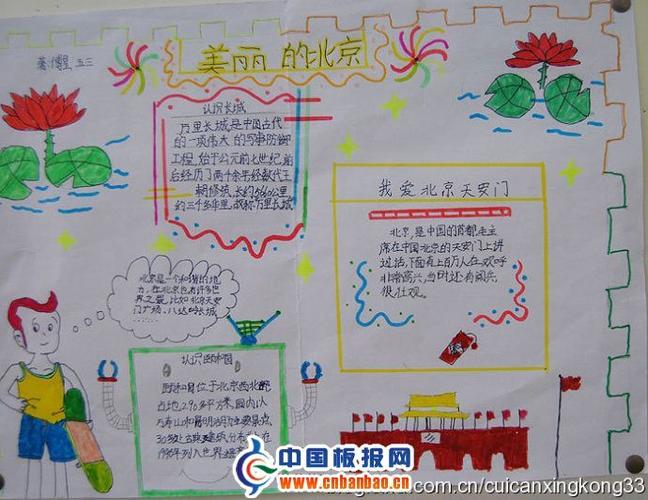 美丽的北京
五三
认识长城
万里长城是中国古代
的一项伟大的军事防御
工程,始于公元前七世纪,前
后经历了两千余年经数代王
朝修筑,长约6700公里
约三千多年里,故称万里长城
我爱北京天安门
北京,是中国的首都,毛主
席在中国北京的天安门上讲
过话,下面有上百万人在欢呼
非常高兴,当时还有阅兵
很壮观。
北京是一个和谐的地
方,在北京也有许多世
界之最,比如北京天安
门广场、八达岭长城
......
认识颐和园
颐和园位于北京西北部
占地2.9%多平方米,园内以
万寿山和昆明湖为主要景点
30多处古典建筑分布
1998年列入世界遗产
中国板报网
www.cnbanbao.cn
.com.cn/cuicanxingkong33